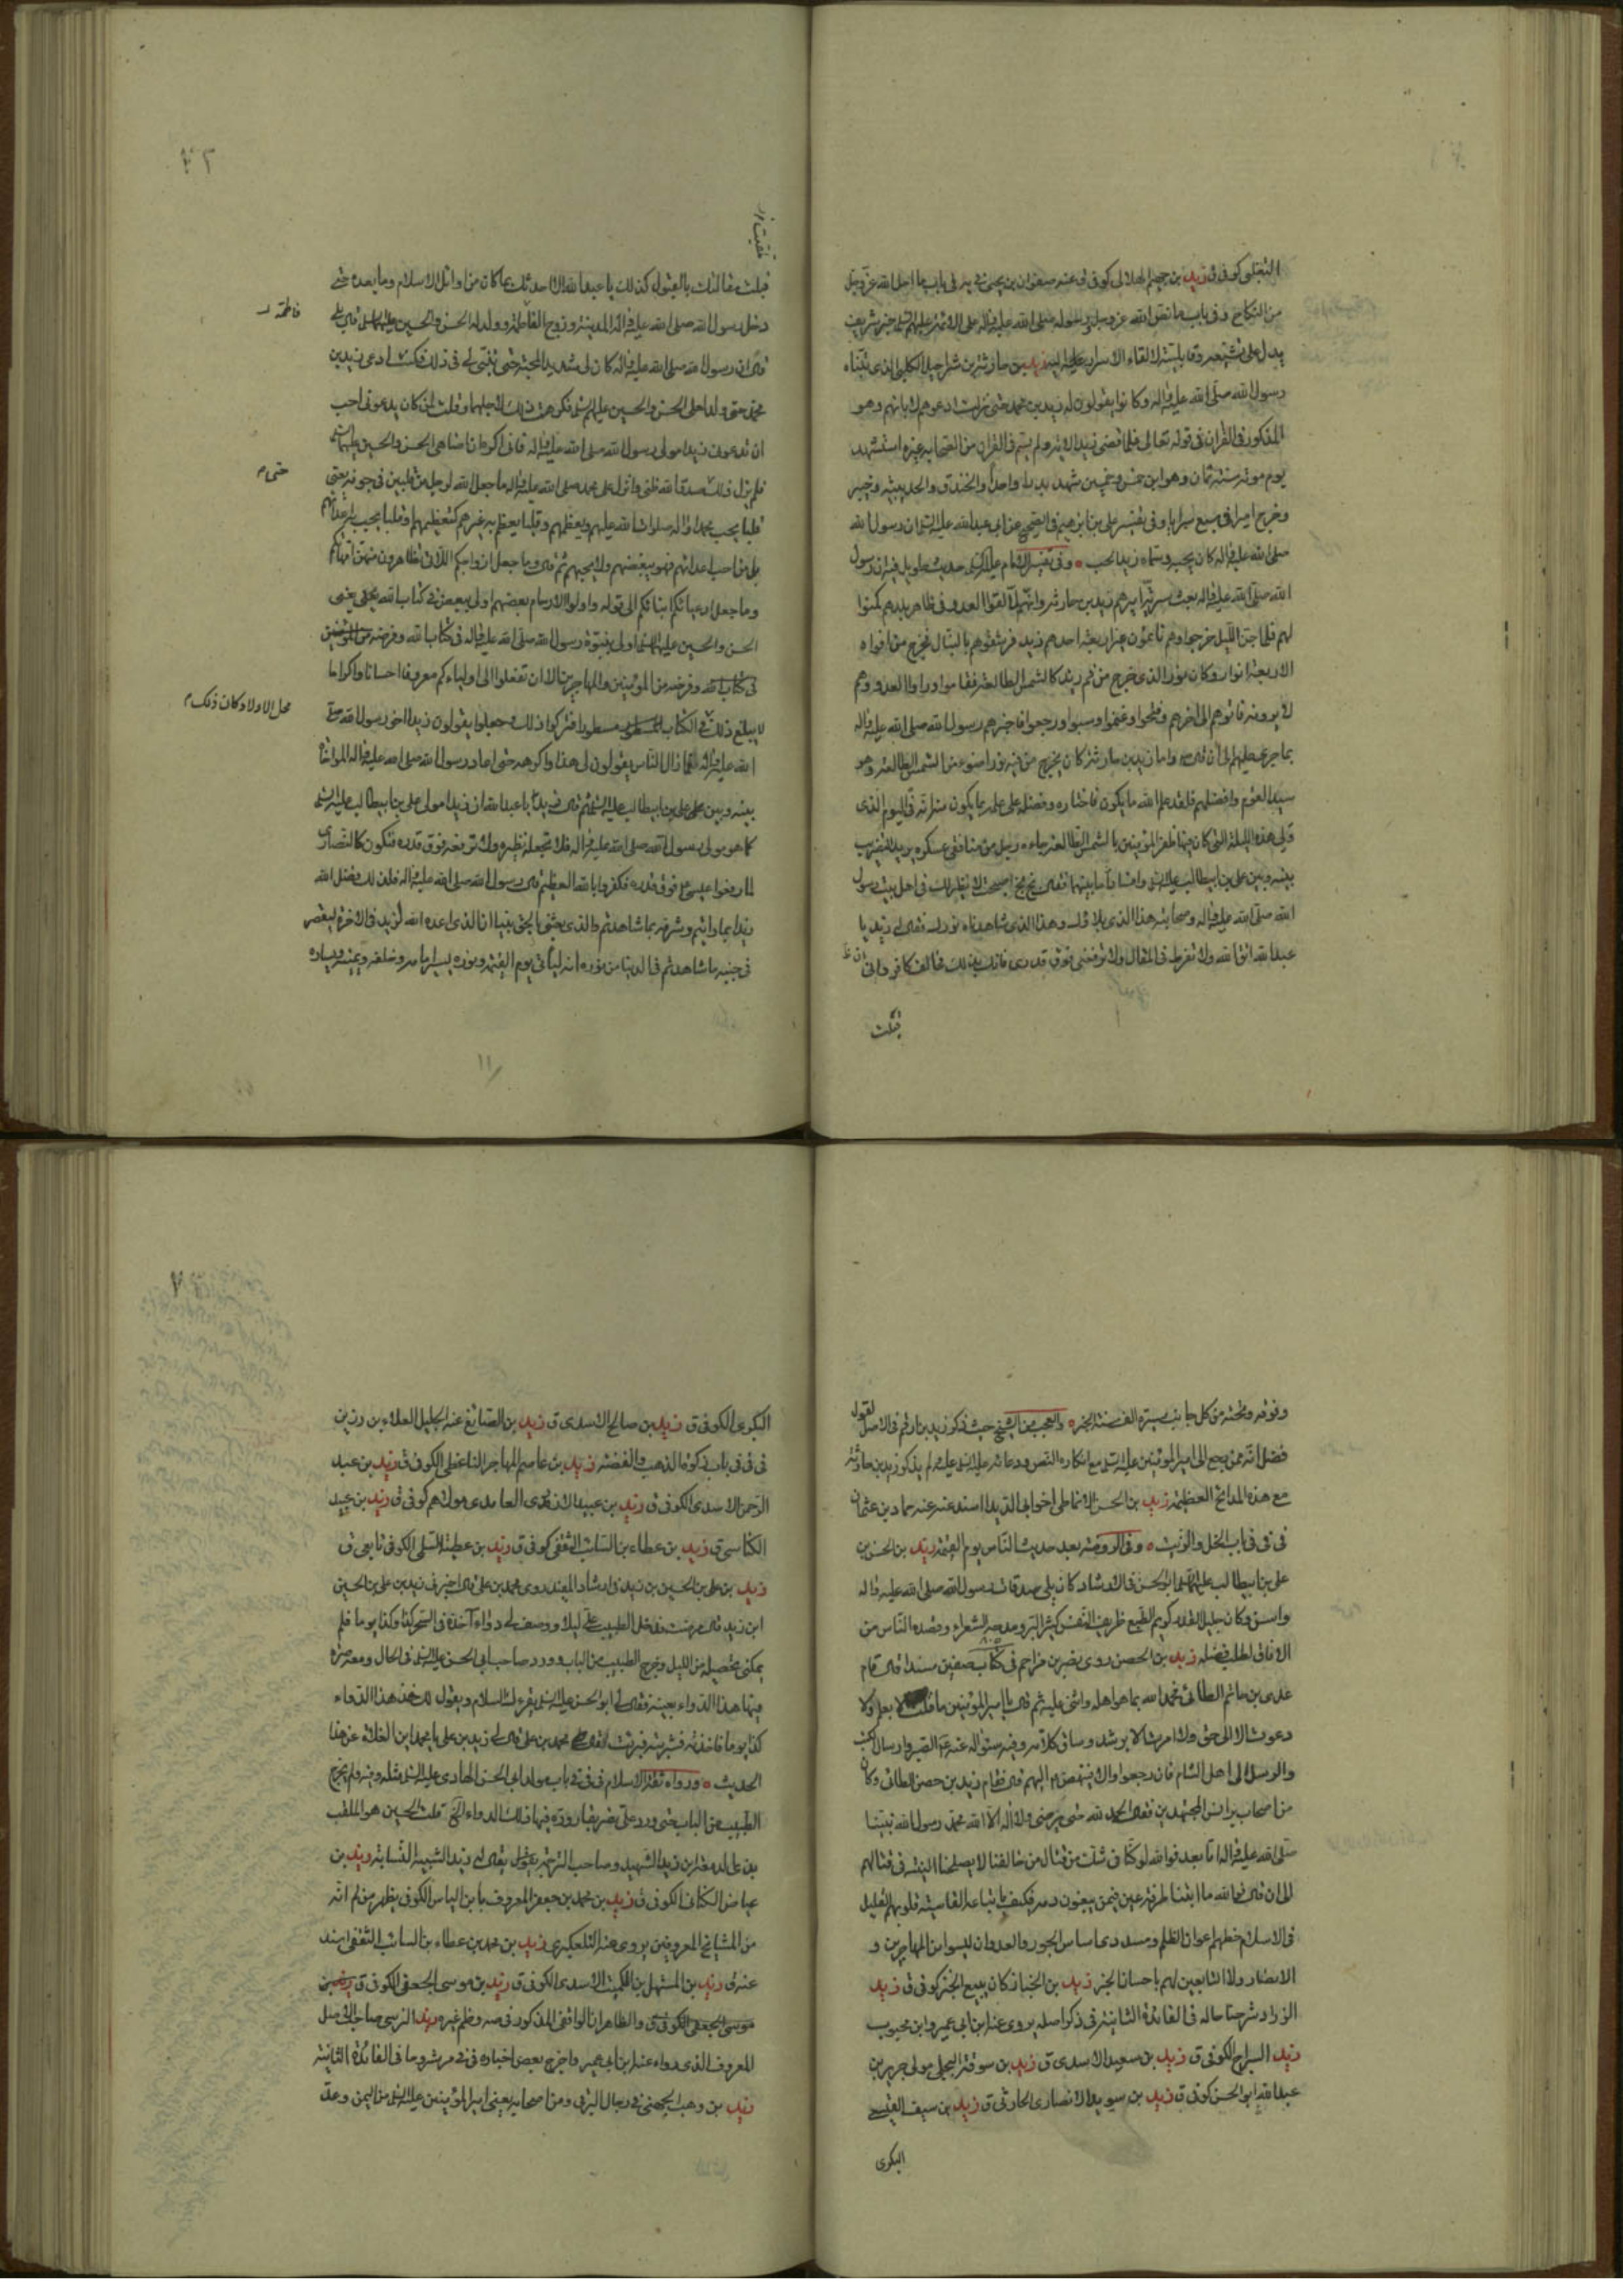 الثعلبي كوفي ق زيد بن جهيم الهلالي كوفي ق عنه صفوان بن يحيى في يه في باب ما احل الله عز وجل
من النكاح وفي باب ما نص الله عز وجل ورسوله صلى الله عليه واله على الائمة عليهم السلام خبر شريف
يدل على تشيعه زيد بن حارثة بن شراحيل الكلبي الذي تبناه
رسول الله صلى الله عليه واله وكانوا يقولون له زيد بن محمد حتى نزلت ادعوهم لابائهم وهو
المذكور في القران في قوله تعالى فلما قضى زيد الاية ولم يسم في القران من الصحابة غيره استشهد
يوم موتة سنة ثمان وهو ابن خمس وخمسين شهد بدرا واحدا والخندق والحديبية وخيبر
وخرج اميرا في سبع سرايا وفي تفسير علي بن ابراهيم القمي عن ابي عبد الله عليه السلام ان رسول الله
صلى الله عليه واله كان يحبه وسماه زيد الحب وفي تفسير الامام عليه السلام حديث طويل فيه ان رسول
الله صلى الله عليه واله بعث سرية اميرهم زيد بن حارثة وانهم لقوا العدو في ظاهر بلدهم كمنوا
لهم فلما جن الليل خرجوا وهم نائمون غير اربعة احدهم زيد فرشقوهم بالنبال فخرج من افواه
الاربعة انوار وكان نور الذي خرج من فم زيد كالشمس الطالعة فقاموا وراوا العدو وهم
لا يرونه فاتوهم الى اخرهم وفتحوا وغنموا وسبوا ورجعوا فاخبرهم رسول الله صلى الله عليه واله
بما جرى عليهم الى ان قال واما زيد بن حارثة كان يخرج من فيه نور اضوء من الشمس الطالعة وهو
سيد القوم وافضلهم فلقد علم الله ما يكون فاختاره وفضله على علمه بما يكون منه انه في اليوم الذي
ولي هذه الليلة التي كان فيها ظفر المؤمنين بالشمس الطالعة جاءه رجل من منافقي عسكره يريد التضريب
بينه وبين علي بن ابيطالب عليه السلام وافساد ما بينهما فقال بخ بخ اصبحت لا نظير لك في اهل بيت رسول
الله صلى الله عليه واله وصحابته هذا الذي بلاؤك وهذا الذي شاهدناه نورك فقال له زيد يا
عبد الله اتق الله ولا تفرط في المقال ولا ترفعني فوق قدري فانك بذلك مخالف كافر واني ان
قبلت
قبلت مقالتك بالقبول كذلك يا عبد الله الا احدثك بما كان من اوائل الاسلام وما بعده حتى
دخل رسول الله صلى الله عليه واله المدينة وزوج الفاطمة وولد له الحسن والحسين عليهما السلام قال بلى
فاطمة
قال ان رسول الله صلى الله عليه واله كان لي شديد المحبة حتى تبناني لي في ذلك فكنت ادعى زيد بن
محمد حتى ولد لعلي الحسن والحسين عليهم السلام فكرهت ذلك لاجلهما وقلت لمن كان يدعوني احب
ان تدعوني زيدا مولى رسول الله صلى الله عليه واله فاني اكره ان اضاهي الحسن والحسين عليهما السلام
فلم يزل ذلك صدق الله ظني وانزل على محمد صلى الله عليه واله ما جعل الله لرجل من قلبين في جوفه يعني
حتى
قلبا يحب محمدا واله صلوات الله عليهم ويعظمهم وقلبا يعظم به غيرهم كتعظيمهم او قلبا يحب به اعدائهم
بل من احب اعدائهم فهو يبغضهم ولا يحبهم ثم قال وما جعل ازواجكم اللائي تظاهرون منهن امهاتكم
وما جعل ادعيائكم ابنائكم الى قوله واولوا الارحام بعضهم اولى ببعض في كتاب الله يعني
الحسن والحسين عليهما السلام اولى ببنوة رسول الله صلى الله عليه واله في كتاب الله وفرضه
في كتاب الله وفرضه من المؤمنين والمهاجرين الا ان تفعلوا الى اوليائكم معروفا احسانا واكراما
لا يبلغ ذلك محل الاولاد وكان ذلك في الكتاب مسطورا فتركوا ذلك وجعلوا يقولون زيد اخو رسول الله صلى
الله عليه واله فما زال الناس يقولون لي هذا واكرهه حتى اعاد رسول الله صلى الله عليه واله المواخاة
بينه وبين علي بن ابيطالب عليه السلام ثم قال زيد يا عبد الله ان زيدا مولى علي بن ابيطالب عليه السلام
كما هو مولى رسول الله صلى الله عليه واله فلا تجعله نظيره ولا ترفعه فوق قدره فتكون كالنصارى
لما رفعوا عيسى ع فوق قدره فكفروا بالله العظيم قال رسول الله صلى الله عليه واله فلذلك فضل الله
زيدا بما رايتم وشرفه بما شاهدتم والذي بعثني بالحق نبيا ان الذي اعده الله لزيد في الاخرة ليصغر
في جنبه ما شاهدتم في الدنيا من نوره انه لياتي يوم القيمة ونوره يسير امامه وخلفه ويمينه ويساره
١١
وفوقه وتحته من كل جانب مسيرة الف سنة الخبر والعجب من الشيخ حيث ذكر زيد بن ارقم في الاصل لقول
فضل انه ممن رجع الى امير المؤمنين عليه السلام مع انكاره النص ودعائه عليه السلام عليه ولم يذكر زيد بن حارثة
مع هذه المدائح العظيمة زيد بن الحسن الانماطي اخو ابي الديداء اسند عنه عنه حماد بن عثمان
في في في باب الخل والزيت وفي الروضة بعد حديث الناس يوم القيمة زيد بن الحسن بن
علي بن ابيطالب عليهم السلام ابو الحسن في الارشاد كان يلي صدقات رسول الله صلى الله عليه واله
واسن وكان جليل القدر كريم الطبع ظريف النفس كثير البر ومدحه الشعراء وقصده الناس من
الافاق لطلب فضله زيد بن الحصن روى نصر بن مزاحم في كتاب صفين مسندا قال قام
عدي بن حاتم الطائي فحمد الله بما هو اهله واثنى عليه ثم قال يا امير المؤمنين ما قلت الا بعلم ولا
دعوت الا الى حق ولا امرت الا برشد وساق كلامه وفيه سؤاله عنه ع الصبر وارسال الكتب
والرسل الى اهل الشام فان رجعوا والا ينهض اليهم قال فقام زيد بن حصن الطائي وكان
من اصحاب برانس المجتهدين فقال الحمد لله حتى يرضى ولا اله الا الله محمد رسول الله نبينا
صلى الله عليه واله اما بعد فوالله لو كنا في شك من قتال من خالفنا لا يصلحنا النية في قتالهم
الى ان قال فما الله ما ابغنا طرفة عين فيمن يبغون دمه فكيف باتباعه القاسية قلوبهم القليل
في الاسلام حظهم اعوان الظلم ومسددي اساس الجور والعدوان ليسوا من المهاجرين و
الانصار ولا التابعين لهم باحسان الخبر زيد بن الخباز كان يبيع الخبز كوفي ق زيد
الزراد شرحنا حاله في الفائدة الثانية في ذكر اصله يروي عنه ابن ابي عمير وابن محبوب
زيد السراج الكوفي ق زيد بن سعيد الاسدي ق زيد بن سوقة البجلي مولى جرير بن
عبد الله ابو الحسن كوفي ق زيد بن سويد الانصاري الحارثي ق زيد بن سيف القيسي
البكري
البكري الكوفي ق زيد بن صالح الاسدي ق زيد بن الصائغ عنه الجليل العلاء بن رزين
في في في باب زكوة الذهب والفضة زيد بن عاصم المهاجر الناعطي الكوفي ق زيد بن عبد
الرحمن الاسدي الكوفي ق زيد بن عبيد الازدي الغامدي مولاهم كوفي ق زيد بن عبيد
الكناسي ق زيد بن عطاء بن السائب الثقفي كوفي ق زيد بن عطية السلمي الكوفي تابعي ق
زيد بن علي بن الحسين بن زيد في ارشاد المفيد روى محمد بن علي قال اخبرني زيد بن علي بن الحسين
ابن زيد قال مرضت فدخل الطبيب علي ليلا ووصف لي دواء آخذه في السحر كذا وكذا يوما فلم
يمكني تحصيله من الليل وخرج الطبيب من الباب وورد صاحب ابي الحسن عليه السلام في الحال ومعه صرة
فيها هذا الدواء بعينه فقال لي ابو الحسن عليه السلام يقرءك السلام ويقول لك خذ هذا الدواء
كذا يوما فاخذته فشربته فبرئت قال محمد بن علي قال لي زيد بن علي يا محمد اين الغلاة عن هذا
الحديث ورواه ثقة الاسلام في في في باب مولد ابي الحسن الهادي عليه السلام مثله وفيه ولم يخرج
الطبيب من الباب حتى ورد علي نصر بقارورة فيها ذلك الدواء الخ قلت الحسين هو الملقب
زيد الشهيد وصاحب الترجمة يقال له زيد الشبيه النسابة زيد بن
عياض الكناني الكوفي ق زيد بن محمد بن جعفر المعروف بابن الياس الكوفي يظهر من لم انه
من المشايخ المعروفين يروي عنه التلعكبري زيد بن محمد بن عطاء بن السائب الثقفي اسند
عنه ق زيد بن المستهل بن الكميت الاسدي الكوفي ق زيد بن موسى الجعفي الكوفي ق زيد بن
موسى الجعفي الكوفي ق والظاهر انه الواقفي المذكور في صه وظم غيره زيد النرسي صاحب الاصل
المعروف الذي رواه عنه ابن ابي عمير واخرج بعض اخباره في في مر شروحا في الفائدة الثانية
زيد بن وهب الجهني في رجال البرقي ومن اصحابه يعني امير المؤمنين عليه السلام من اليمن وعد